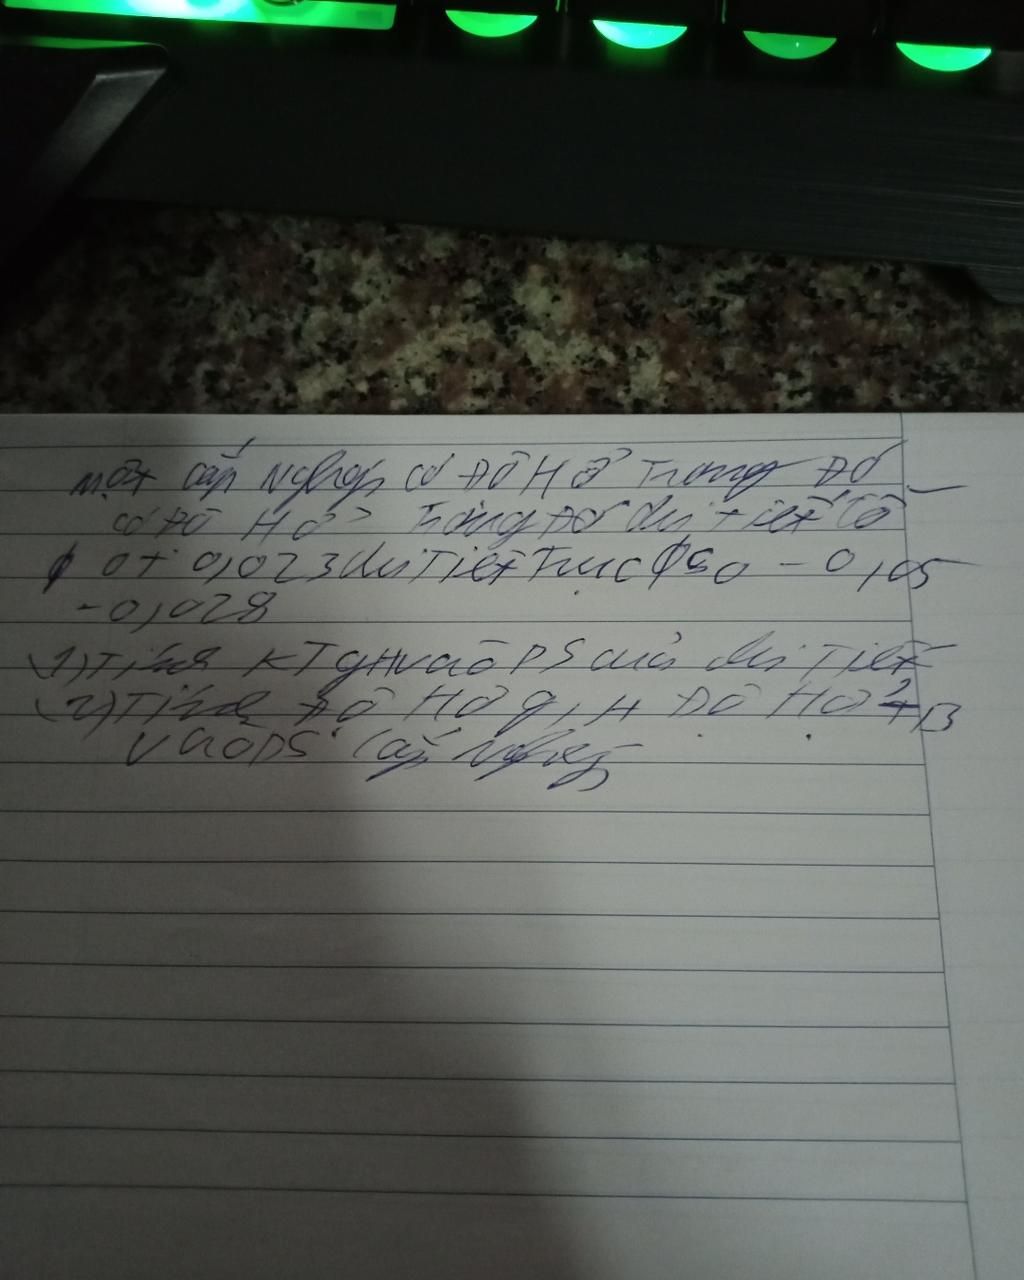 một cặp Nghép có Độ Hở Trong Đó
có Độ Hở Trong Đó chi tiết lỗ
φ 0+ 0,023 chi Tiết Trục φ50 - 0,05
- 0,028
(1) Tính KTGH và DS của chi Tiết
(2) Tính Độ Hở g, H Độ Hở TB
và DS Cặp Nghép